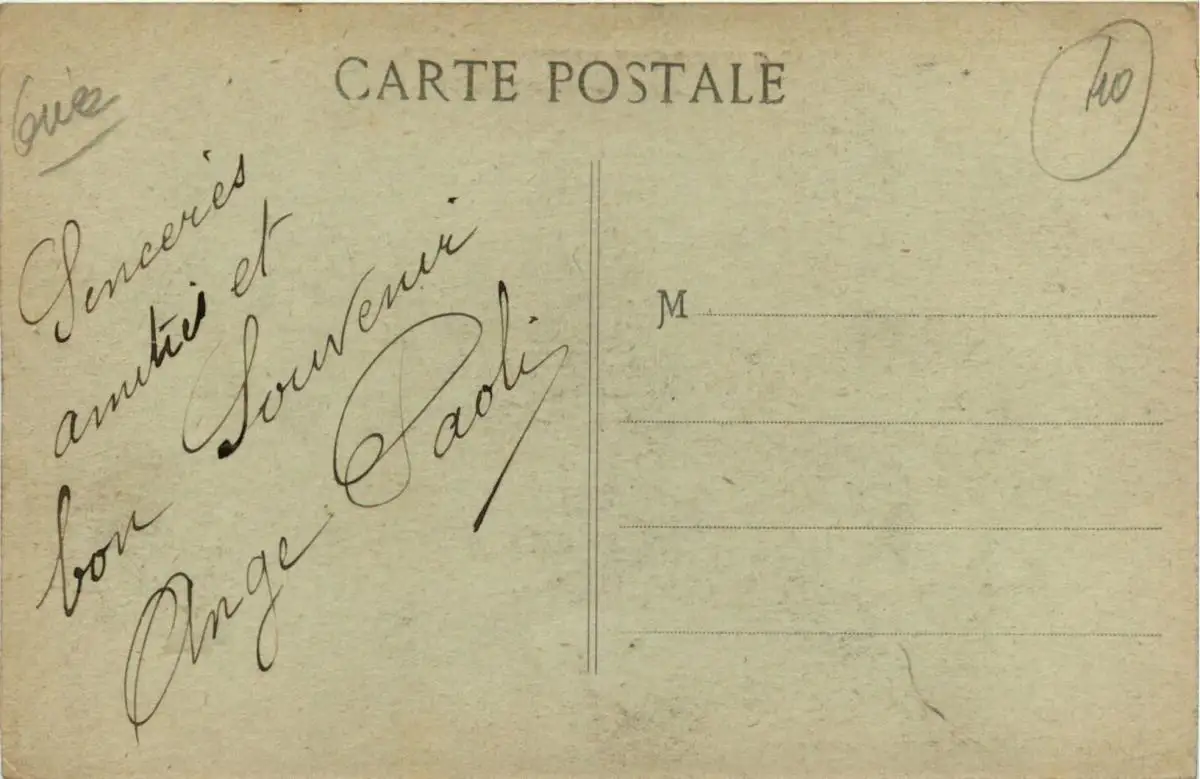 CARTE POSTALE
40
Sinceries
amitiés et
bon Souvenir
Ange Paoli
M